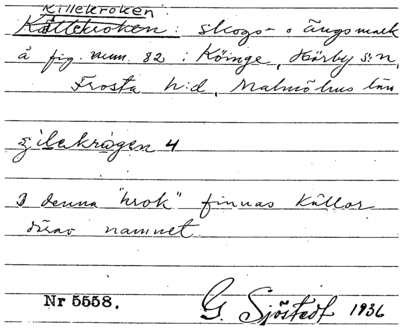 Killekroken
Källekroken: skogs- o ängsmark
å fig. num. 82 i Köinge, Hörby s:n,
Frosta h:d, Malmöhus län
ɕilekrågen 4
I denna "krok" finnas källor
därav namnet.
Nr 5558.
G. Sjöstedt 1936